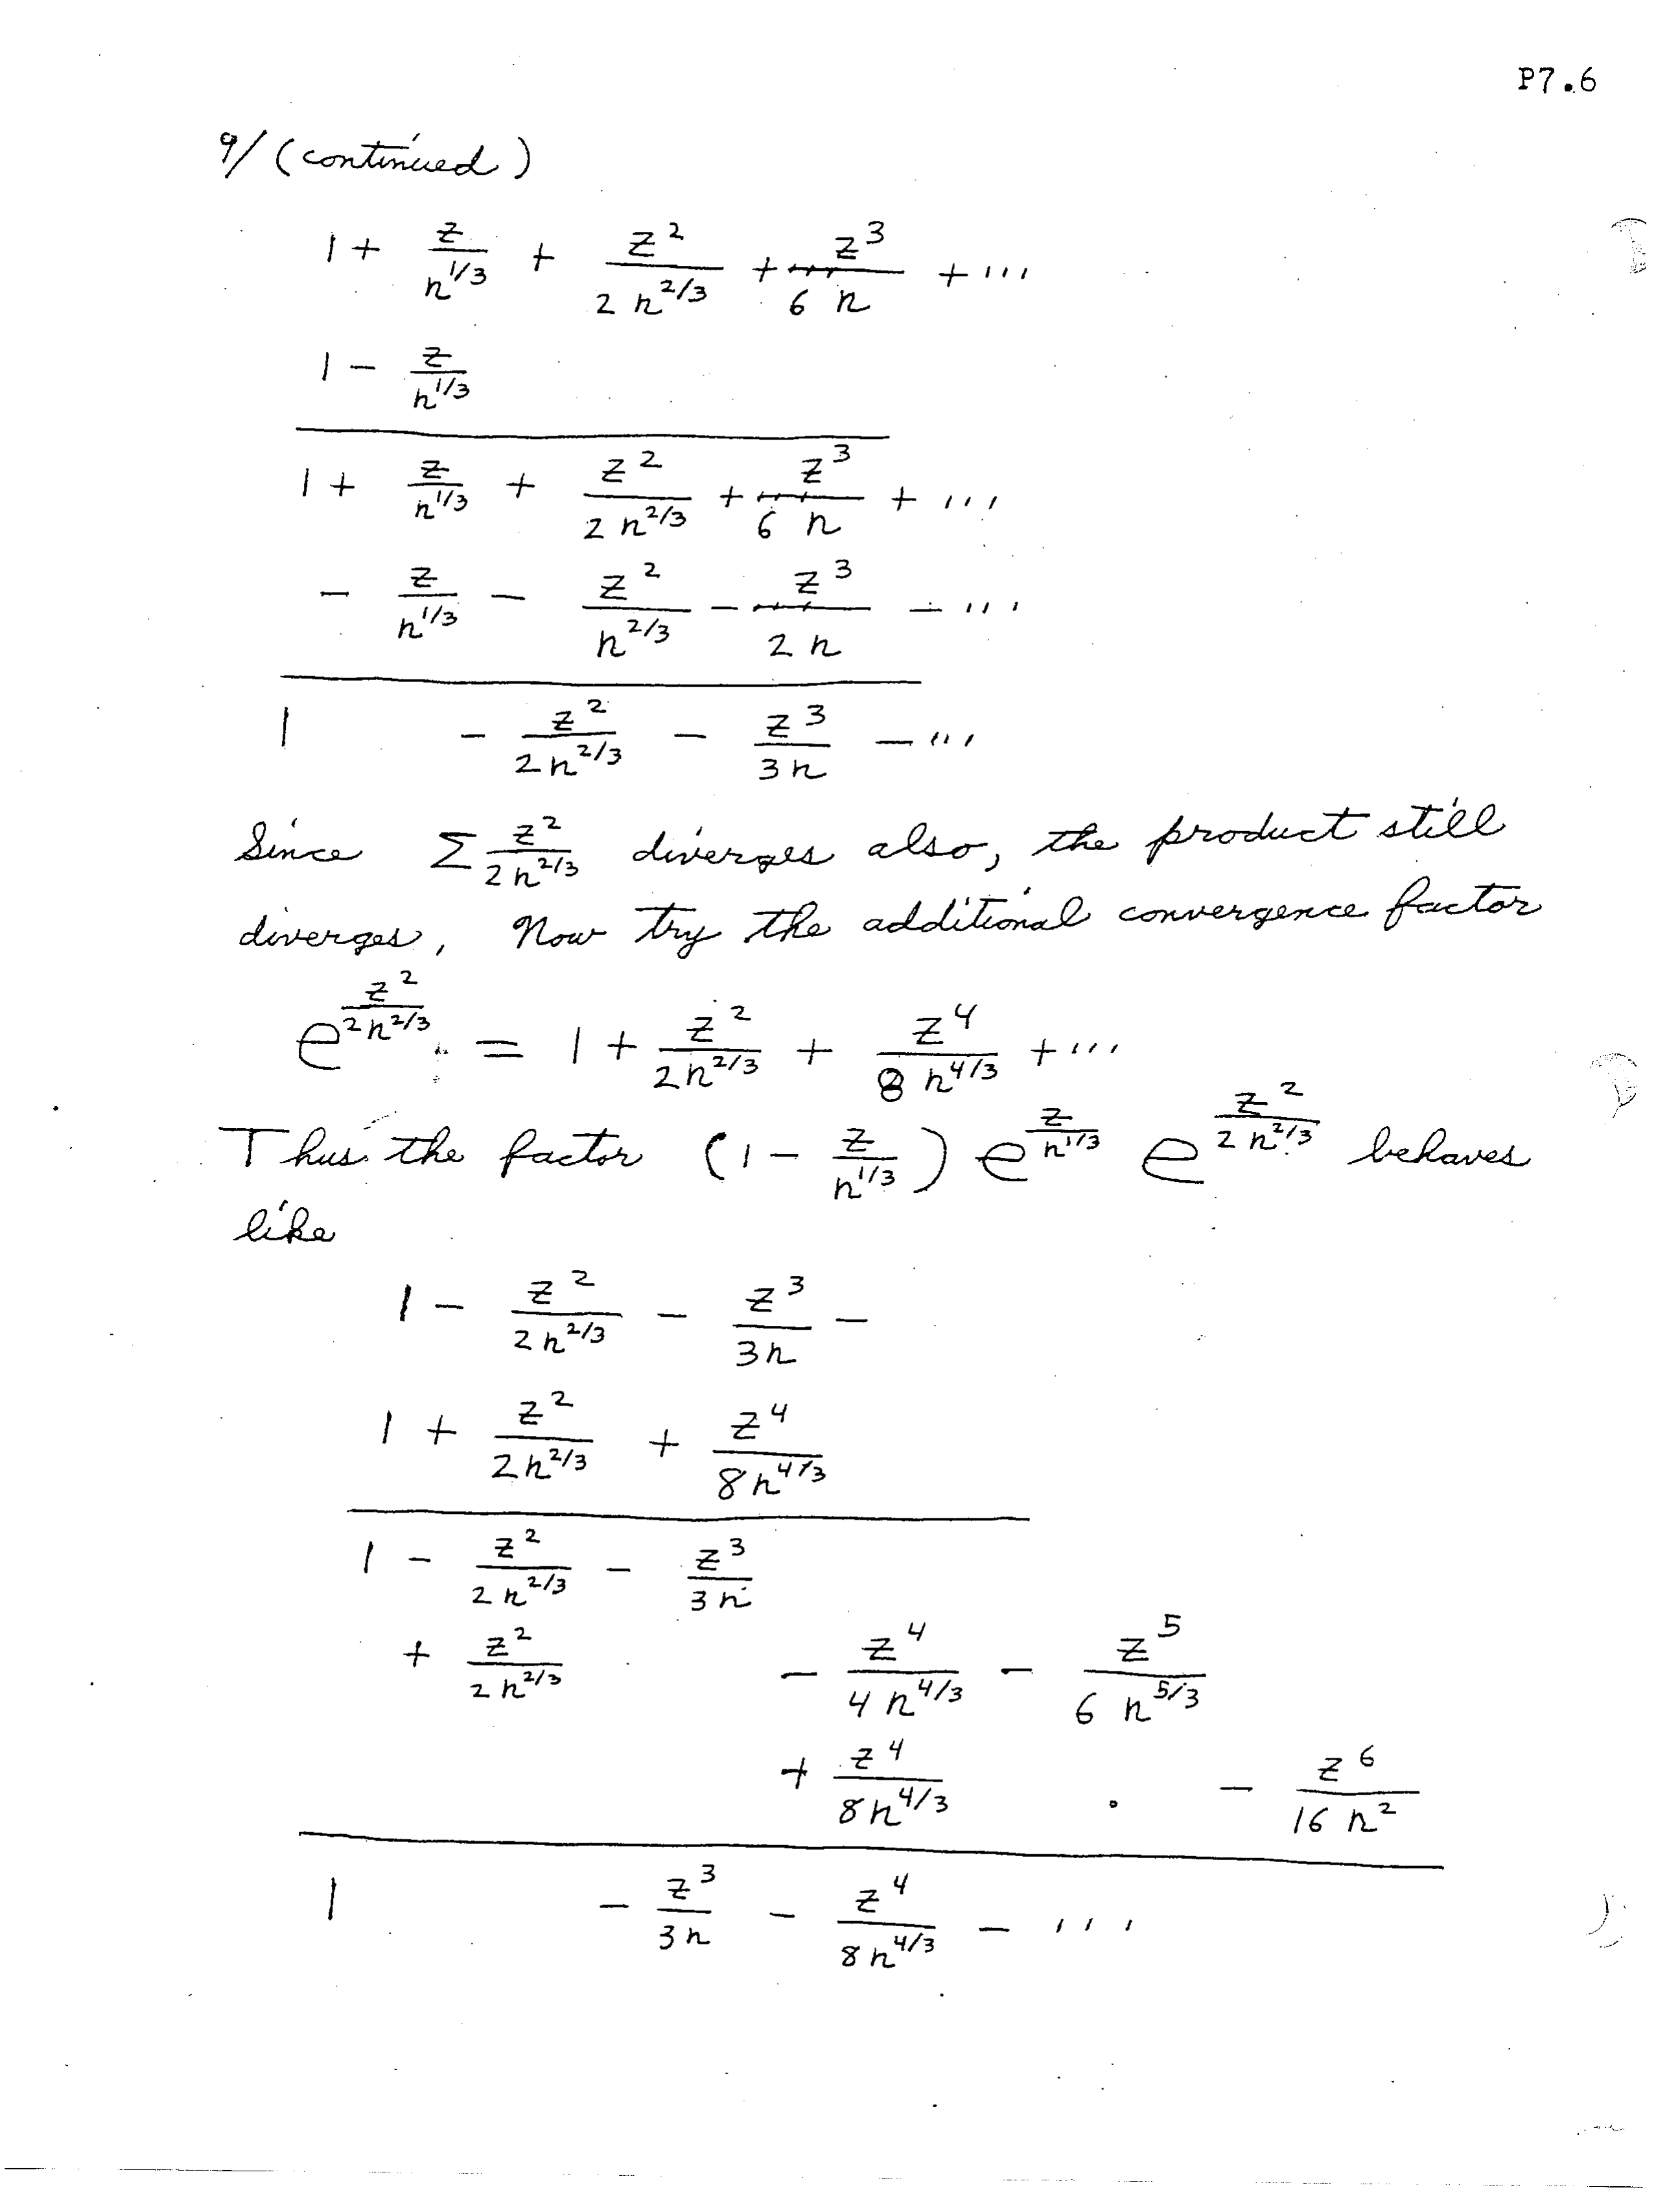 P7.6
9/ (continued)
1 + z/n^{1/3} + z^2/(2 n^{2/3}) + z^3/(6 n) + ...
1 - z/n^{1/3}
1 + z/n^{1/3} + z^2/(2 n^{2/3}) + z^3/(6 n) + ...
- z/n^{1/3} - z^2/n^{2/3} - z^3/(2 n) - ...
1 - z^2/(2n^{2/3}) - z^3/(3n) - ...
Since Σ z^2/(2n^{2/3}) diverges also, the product still
diverges, Now try the additional convergence factor
e^{z^2/(2n^{2/3})} = 1 + z^2/(2n^{2/3}) + z^4/(8 n^{4/3}) + ...
Thus the factor (1 - z/n^{1/3}) e^{z/n^{1/3}} e^{z^2/(2 n^{2/3})} behaves
like
1 - z^2/(2n^{2/3}) - z^3/(3n) -
1 + z^2/(2n^{2/3}) + z^4/(8n^{4/3})
1 - z^2/(2n^{2/3}) - z^3/(3n)
+ z^2/(2n^{2/3}) - z^4/(4 n^{4/3}) - z^5/(6 n^{5/3})
+ z^4/(8n^{4/3}) . - z^6/(16 n^2)
1 - z^3/(3n) - z^4/(8n^{4/3}) - ...